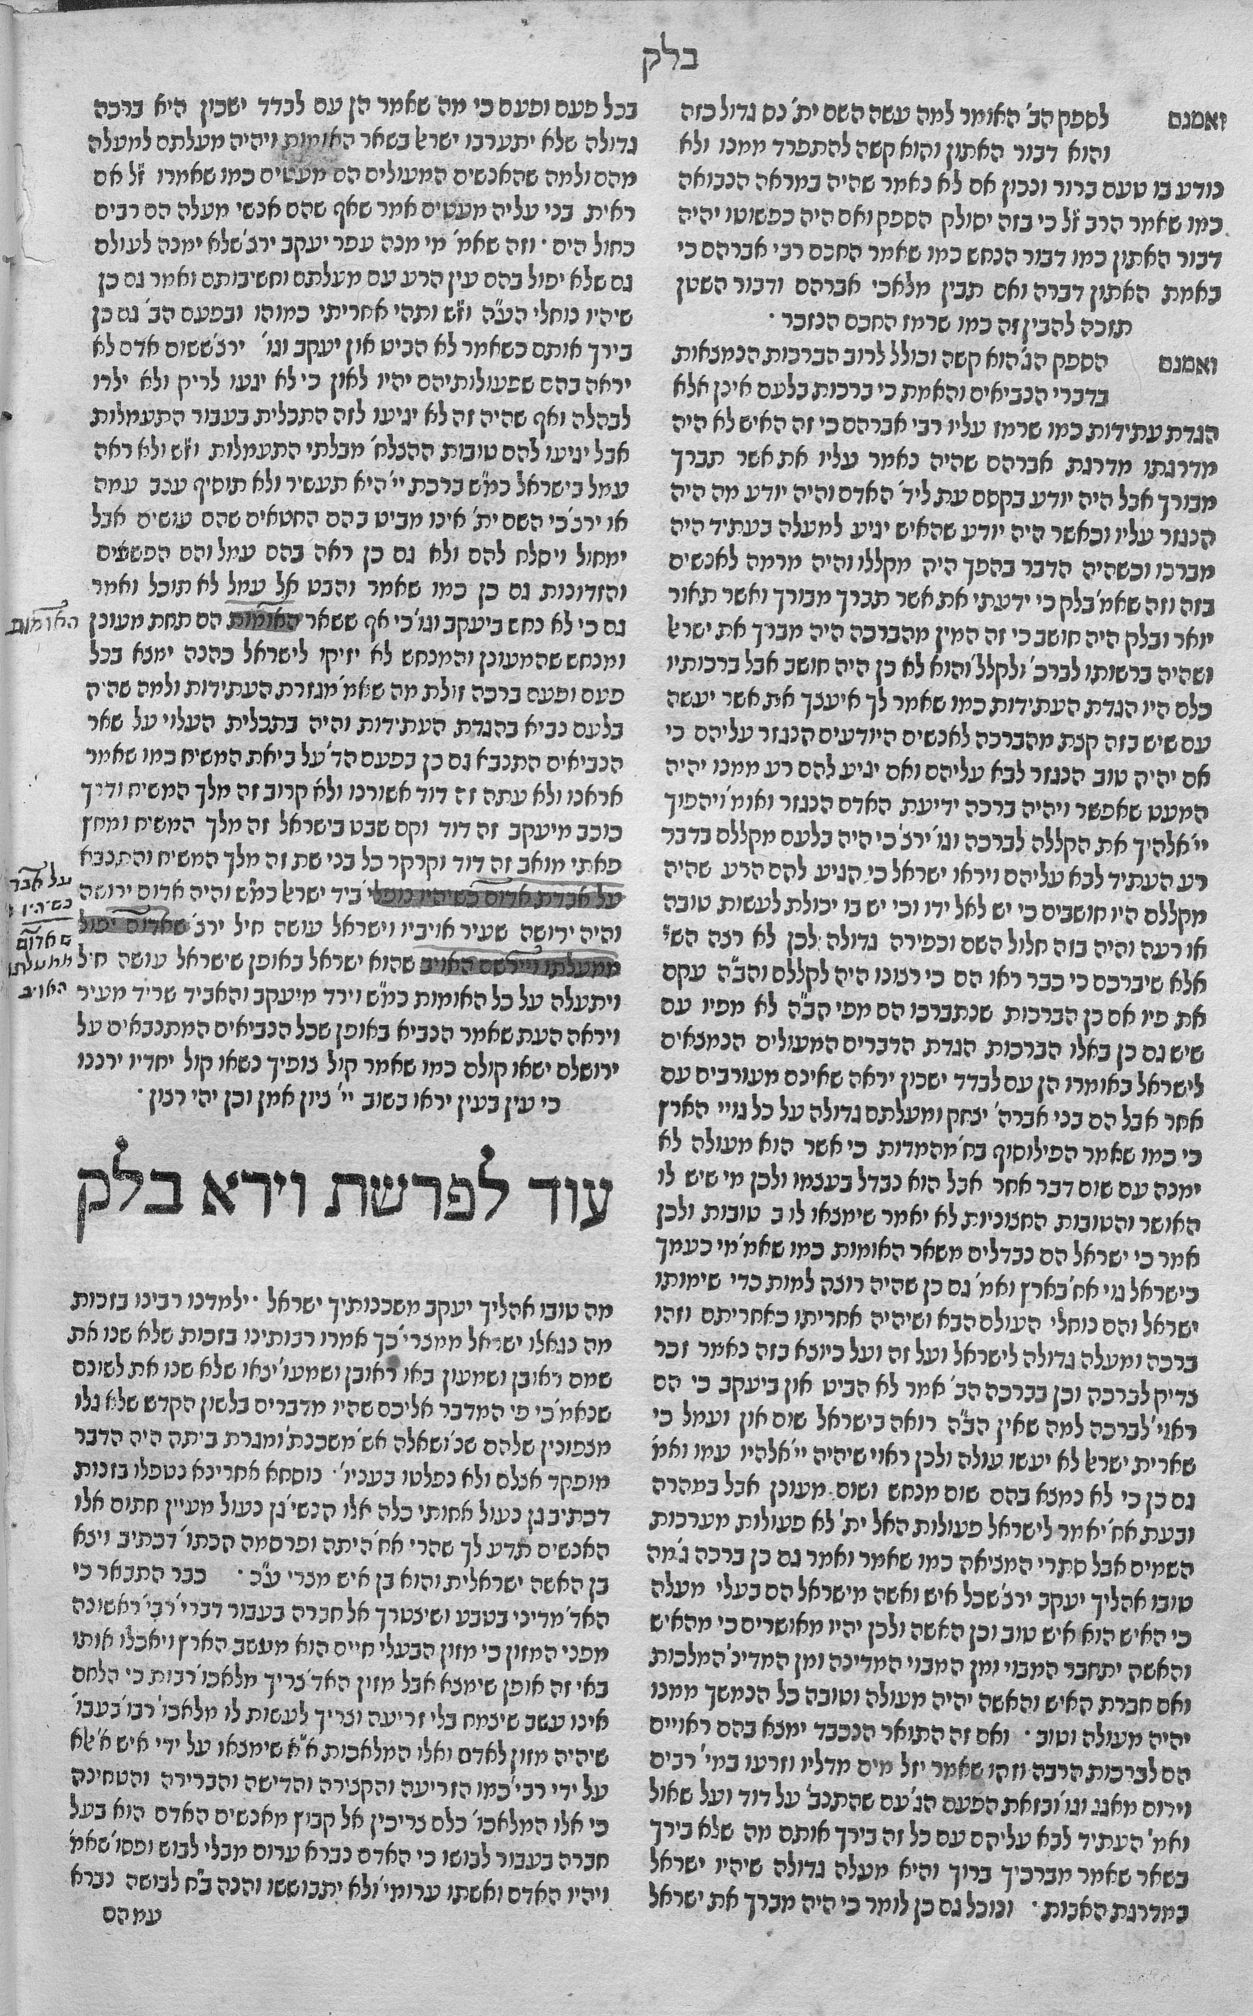 בלק
ואמנם לספק הב' האומר למה עשה השם ית' נס גדול כזה
והוא דבור האתון והוא קשה להתפרד ממנו ולא
נודע בו טעם ברור ונכון אם לא נאמר שהיה במראה הנבואה
כמו שאמר הרב ז"ל כי בזה יסולק הספק ואם היה כפשוטו יהיה
דבור האתון כמו דבור הנחש כמו שאמר החכם רבי אברהם כי
באמת האתון דברה ואם תבין מלאכי אברהם ודבור השטן
תזכה להבין זה כמו שרמז החכם הנזכר .
ואמנם הספק הג' הוא קשה וכולל לרוב הברכות הנמצאות
בדברי הנביאים והאמת כי ברכות בלעם אינן אלא
הגדת עתידות כמו שרמז עליו רבי אברהם כי זה האיש לא היה
מדרגתו מדרגת אברהם שהיה נאמר עליו את אשר תברך
מבורך אבל היה יודע בקסם עת ליד' האדם והיה יודע מה היה
הנגזר עליו וכאשר היה יודע שהאיש יגיע למעלה בעתיד היה
מברכו וכשהיה הדבר בהפך היה מקללו והיה מרמה לאנשים
בזה וזה שאמ' בלק כי ידעתי את אשר תברך מבורך ואשר תאור
יואר ובלק היה חושב כי זה המין מהברכה היה מברך את ישרא'
ושהיה ברשותו לברכ' ולקלל' והוא לא כן היה חושב אבל ברכותיו
כלם היו הגדת העתידות כמו שאמר לך איעצך את אשר יעשה
עם שיש בזה קצת מהברכה לאנשים היודעים הנגזר עליהם כי
אם יהיה טוב הנגזר לבא עליהם ואם יגיע להם רע ממנו יהיה
המעט שאפשר ויהיה ברכה ידיעת האדם הנגזר ואומ' ויהפוך
יי' אלהיך את הקללה לברכה וגו' ירצ' כי היה בלעם מקללם בדבר
רע העתיד לבא עליהם ויראו ישראל כי הגיע להם הרע שהיה
מקללם היו חושבים כי יש לאל ידו וכי יש בו יכולת לעשות טובה
או רעה והיה בזה חלול השם וכפירה גדולה לכן לא רצה השי"
אלא שיברכם כי כבר ראו הם כי רצונו היה לקללם והב"ה עקם
את פיו אם כן הברכות שנתברכו הם מפי הב"ה לא מפיו עם
שיש גם כן באלו הברכות הגדת הדברים המעולים הנמצאים
לישראל באומרו הן עם לבדד ישכון יראה שאינם מעורבים עם
אחר אבל הם בני אברה' יצחק ומעלתם גדולה על כל גויי הארץ
כי כמו שאמר הפילוסוף בח' מהמדות כי אשר הוא מעולה לא
ימנה עם שום דבר אחר אבל הוא נבדל בעצמו ולכן מי שיש לו
האושר והטובות החצוניות לא יאמר שימצאו לו ב טובות ולכן
אמר כי ישראל הם נבדלים משאר האומות כמו שאמ' מי כעמך
כישראל גוי אח' בארץ ואמ' גם כן שהיה רוצה למות כדי שימותו
ישראל והם נוחלי העולם הבא ושיהיה אחריתו כאחריתם וזהו
ברכה ומעלה גדולה לישראל ועל זה ועל כיוצא בזה נאמר זכר
צדיק לברכה וכן בברכה הב' אמר לא הביט און ביעקב כי הם
ראוי' לברכה למה שאין הב"ה רואה בישראל שום און ועמל כי
שארית ישרא' לא יעשו עולה ולכן ראוי שיהיה יי' אלהיו עמו ואמ'
גם כן כי לא נמצא בהם שום מנחש ושום מעונן אבל במהרה
ובעת אח' יאמר לישראל פעולות האל ית' לא פעולות מערכות
השמים אבל סתרי המציאה כמו שאמר ואמר גם כן ברכה ג' מה
טובו אהליך יעקב ירצ' שכל איש ואשה מישראל הם בעלי מעלה
כי האיש הוא איש טוב וכן האשה ולכן יהיו מאושרים כי מהאיש
והאשה יתחבר המבוי ומן המבוי המדינה ומן המדינ' המלכות
ואם חברת האיש והאשה יהיה מעולה וטובה כל הנמשך ממנו
יהיה מעולה וטוב . ואם זה התואר הנכבד ימצא בהם ראויים
הם לברכות הרבה וזהו שאמר יזל מים מדליו וזרעו במי' רבים
וירום מאגג וגו' ובזאת הפעם הג' עם שהתנב' על דוד ועל שאול
ואמ' העתיד לבא עליהם עם כל זה בירך אותם מה שלא בירך
בשאר שאמר מברכיך ברוך והיא מעלה גדולה שיהיו ישראל
במדרגת האבות . ונוכל גם כן לומר כי היה מברך את ישראל
בכל פעם ופעם כי מה שאמר הן עם לבדד ישכון היא ברכה
גדולה שלא יתערבו ישרא' בשאר האומות ויהיה מעלתם למעלה
מהם ולמה שהאנשים המעולים הם מעטים כמו שאמרו ז"ל אם
ראית בני עליה מעטים אמר שאף שהם אנשי מעלה הם רבים
כחול הים . וזה שאמ' מי מנה עפר יעקב ירצ' שלא ימנה לעולם
גם שלא יפול בהם עין הרע עם מעלתם וחשיבותם ואמר גם כן
שיהיו נוחלי הע"ה וז"ש ותהי אחריתי כמוהו ובפעם הב' גם כן
בירך אותם כשאמר לא הביט און יעקב וגו' ירצ' ששום אדם לא
יראה בהם שפעולותיהם יהיו לאון כי לא יגעו לריק ולא ילדו
לבהלה ואף שהיה זה לא יגיעו לזה התכלית בעבור התעמלות
אבל יגיעו להם טובות ההצלח' מבלתי התעמלות וז"ש ולא ראה
עמל בישראל כמ"ש ברכת יי' היא תעשיר ולא תוסיף עצב עמה
או ירצ' כי השם ית' אינו מביט בהם החטאים שהם עושים אבל
ימחול ויסלח להם ולא גם כן ראה בהם עמל והם הפשעים
והזדונות גם כן כמו שאמר והבט אל עמל לא תוכל ואמר
גם כי לא נחש ביעקב וגו' כי אף ששאר האומות הם תחת מעונן
ומנחש שהמעונן והמנחש לא יזיקו לישראל כהנה ימצא בכל
פעם ופעם ברכה זולת מה שאמ' מגזרת העתידות ולמה שהיה
בלעם נביא בהגדת העתידות והיה בתכלית העלוי על שאר
הנביאים התנבא גם כן בפעם הד' על ביאת המשיח כמו שאמר
אראנו ולא עתה זה דוד אשורנו ולא קרוב זה מלך המשיח ודרך
כוכב מיעקב זה דוד וקם שבט בישראל זה מלך המשיח ומחץ
פאתי מואב זה דוד וקרקר כל בני שת זה מלך המשיח והתנבא
על אבדת אדום כשיהיו נופלי' ביד ישרא' כמ"ש והיה אדום ירושה
והיה ירושה שעיר אויביו וישראל עושה חיל ירצ' שאדום יפול
ממעלתו ויירשם האויב שהוא ישראל באופן שישראל עושה חיל
ויתעלה על כל האומות כמ"ש וירד מיעקב והאביד שריד מעיר
ויראה העת שאמר הנביא באופן שכל הנביאים המתנבאים על
ירושלם ישאו קולם כמו שאמר קול צופיך נשאו קול יחדיו ירננו
כי עין בעין יראו בשוב יי' ציון אמן וכן יהי רצון .
האומות
על אבד
כשיהיו
שאדום
ממעלתו
האויב
עוד לפרשת וירא בלק
מה טובו אהליך יעקב משכנותיך ישראל . ילמדנו רבינו בזכות
מה נגאלו ישראל ממצרי' כך אמרו רבותינו בזכות שלא שנו את
שמם ראובן ושמעון באו ראובן ושמעו' יצאו שלא שנו את לשונם
שנאמ' כי פי המדבר אליכם שהיו מדברים בלשון הקדש שלא גלו
מצפונין שלהם שנ' ושאלה אש' משכנת' ומגרת ביתה היה הדבר
מופקד אצלם ולא נפלטו בעניו' . נוסחא אחרינא נטפלו בזכות
דכתיב גן נעול אחותי כלה אלו הנשי' גן נעול מעיין חתום אלו
האנשים תדע לך שהרי אח' היתה ופרסמה הכתו' דכתיב ויצא
בן האשה ישראלית והוא בן איש מצרי ע"כ . כבר התבאר כי
האד' מדיני בטבע ושיצטרך אל חברה בעבור דברי' רבי' ראשונה
מפני המזון כי מזון הבעלי חיים הוא מעשב הארץ ויאכלו אותו
באי זה אופן שימצא אבל מזון האד' צריך מלאכו' רבות כי הלחם
אינו עשב שיצמח בלי זריעה וצריך לעשות לו מלאכו' רבו' בעבו'
שיהיה מזון לאדם ואלו המלאכות א"א שימצאו על ידי איש א' אלא
על ידי רבי' כמו הזריעה והקצירה והדישה והברירה והטחינה
כי אלו המלאכו' כלם צריכין אל קבוץ מאנשים האדם הוא בעל
חברה בעבור לבושו כי האדם נברא ערום מבלי לבוש ופסו' שאמ'
ויהיו האדם ואשתו ערומי' ולא יתבוששו והנה ב"ח לבושה נברא
עמהם